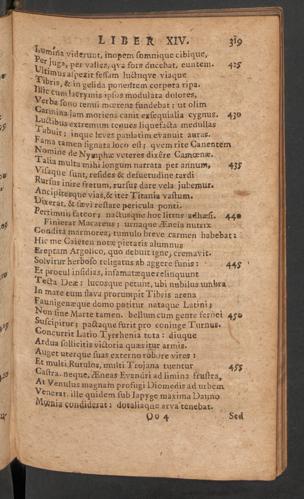 LIBER XIV. 319
Lumina viderunt, inopem somnique cibique,
Per juga, per valles, qua fors ducebat, euntem. 425
Ultimus aspexit fessam luctuque viaque
Tibris, & in gelida ponentem corpora ripa.
Illic cum lacrymis ipsos modulata dolores,
Verba sono tenui mœrens fundebat; ut olim
Carmina jam moriens canit exsequialia cygnus. 430
Luctibus extremum tenues liquefacta medullas
Tabuit; inque leves paulatim evanuit auras.
Fama tamen signata loco est; quem rite Canentem
Nomine de Nymphæ veteres dixere Camœnæ.
Talia multa mihi longum narrata per annum, 435
Visaque sunt, resides & desuetudine tardi
Rursus inire fretum, rursus dare vela jubemur.
Ancipitesque vias, & iter Titania vastum.
Dixerat, & sævi restare pericula ponti.
Pertimui fateor; nactusque hoc litus adhæsi. 440
Finierat Macareus; urnaque Æneia nutrix
Condita marmorea, tumulo breve carmen habebat:
Hic me Caieten notæ pietatis alumnus
Ereptam Argolico, quo debuit igne, cremavit.
Solvitur herboso religatus ab aggere funis: 445
Et procul insidias, infamatæque relinquunt
Tecta Deæ: lucosque petunt, ubi nubilus umbra
In mare cum flava prorumpit Tibris arena
Faunigenæque domo patitur nataque Latini;
Non sine Marte tamen. bellum cum gente feroci 450
Suscipitur; pactaque furit pro conjuge Turnus.
Concurrit Latio Tyrrhenia tota: diuque
Ardua sollicitis victoria quæritur armis.
Auget uterque suas externo robore vires:
Et multi Rutulos, multi Trojana tuentur 455
Castra. neque Æneas Evandri ad limina frustra,
At Venulus magnam profugi Diomedis ad urbem
Venerat. ille quidem sub Iapyge maxima Dauno
Mœnia condiderat: dotaliaque arva tenebat.
Oo 4 Sed